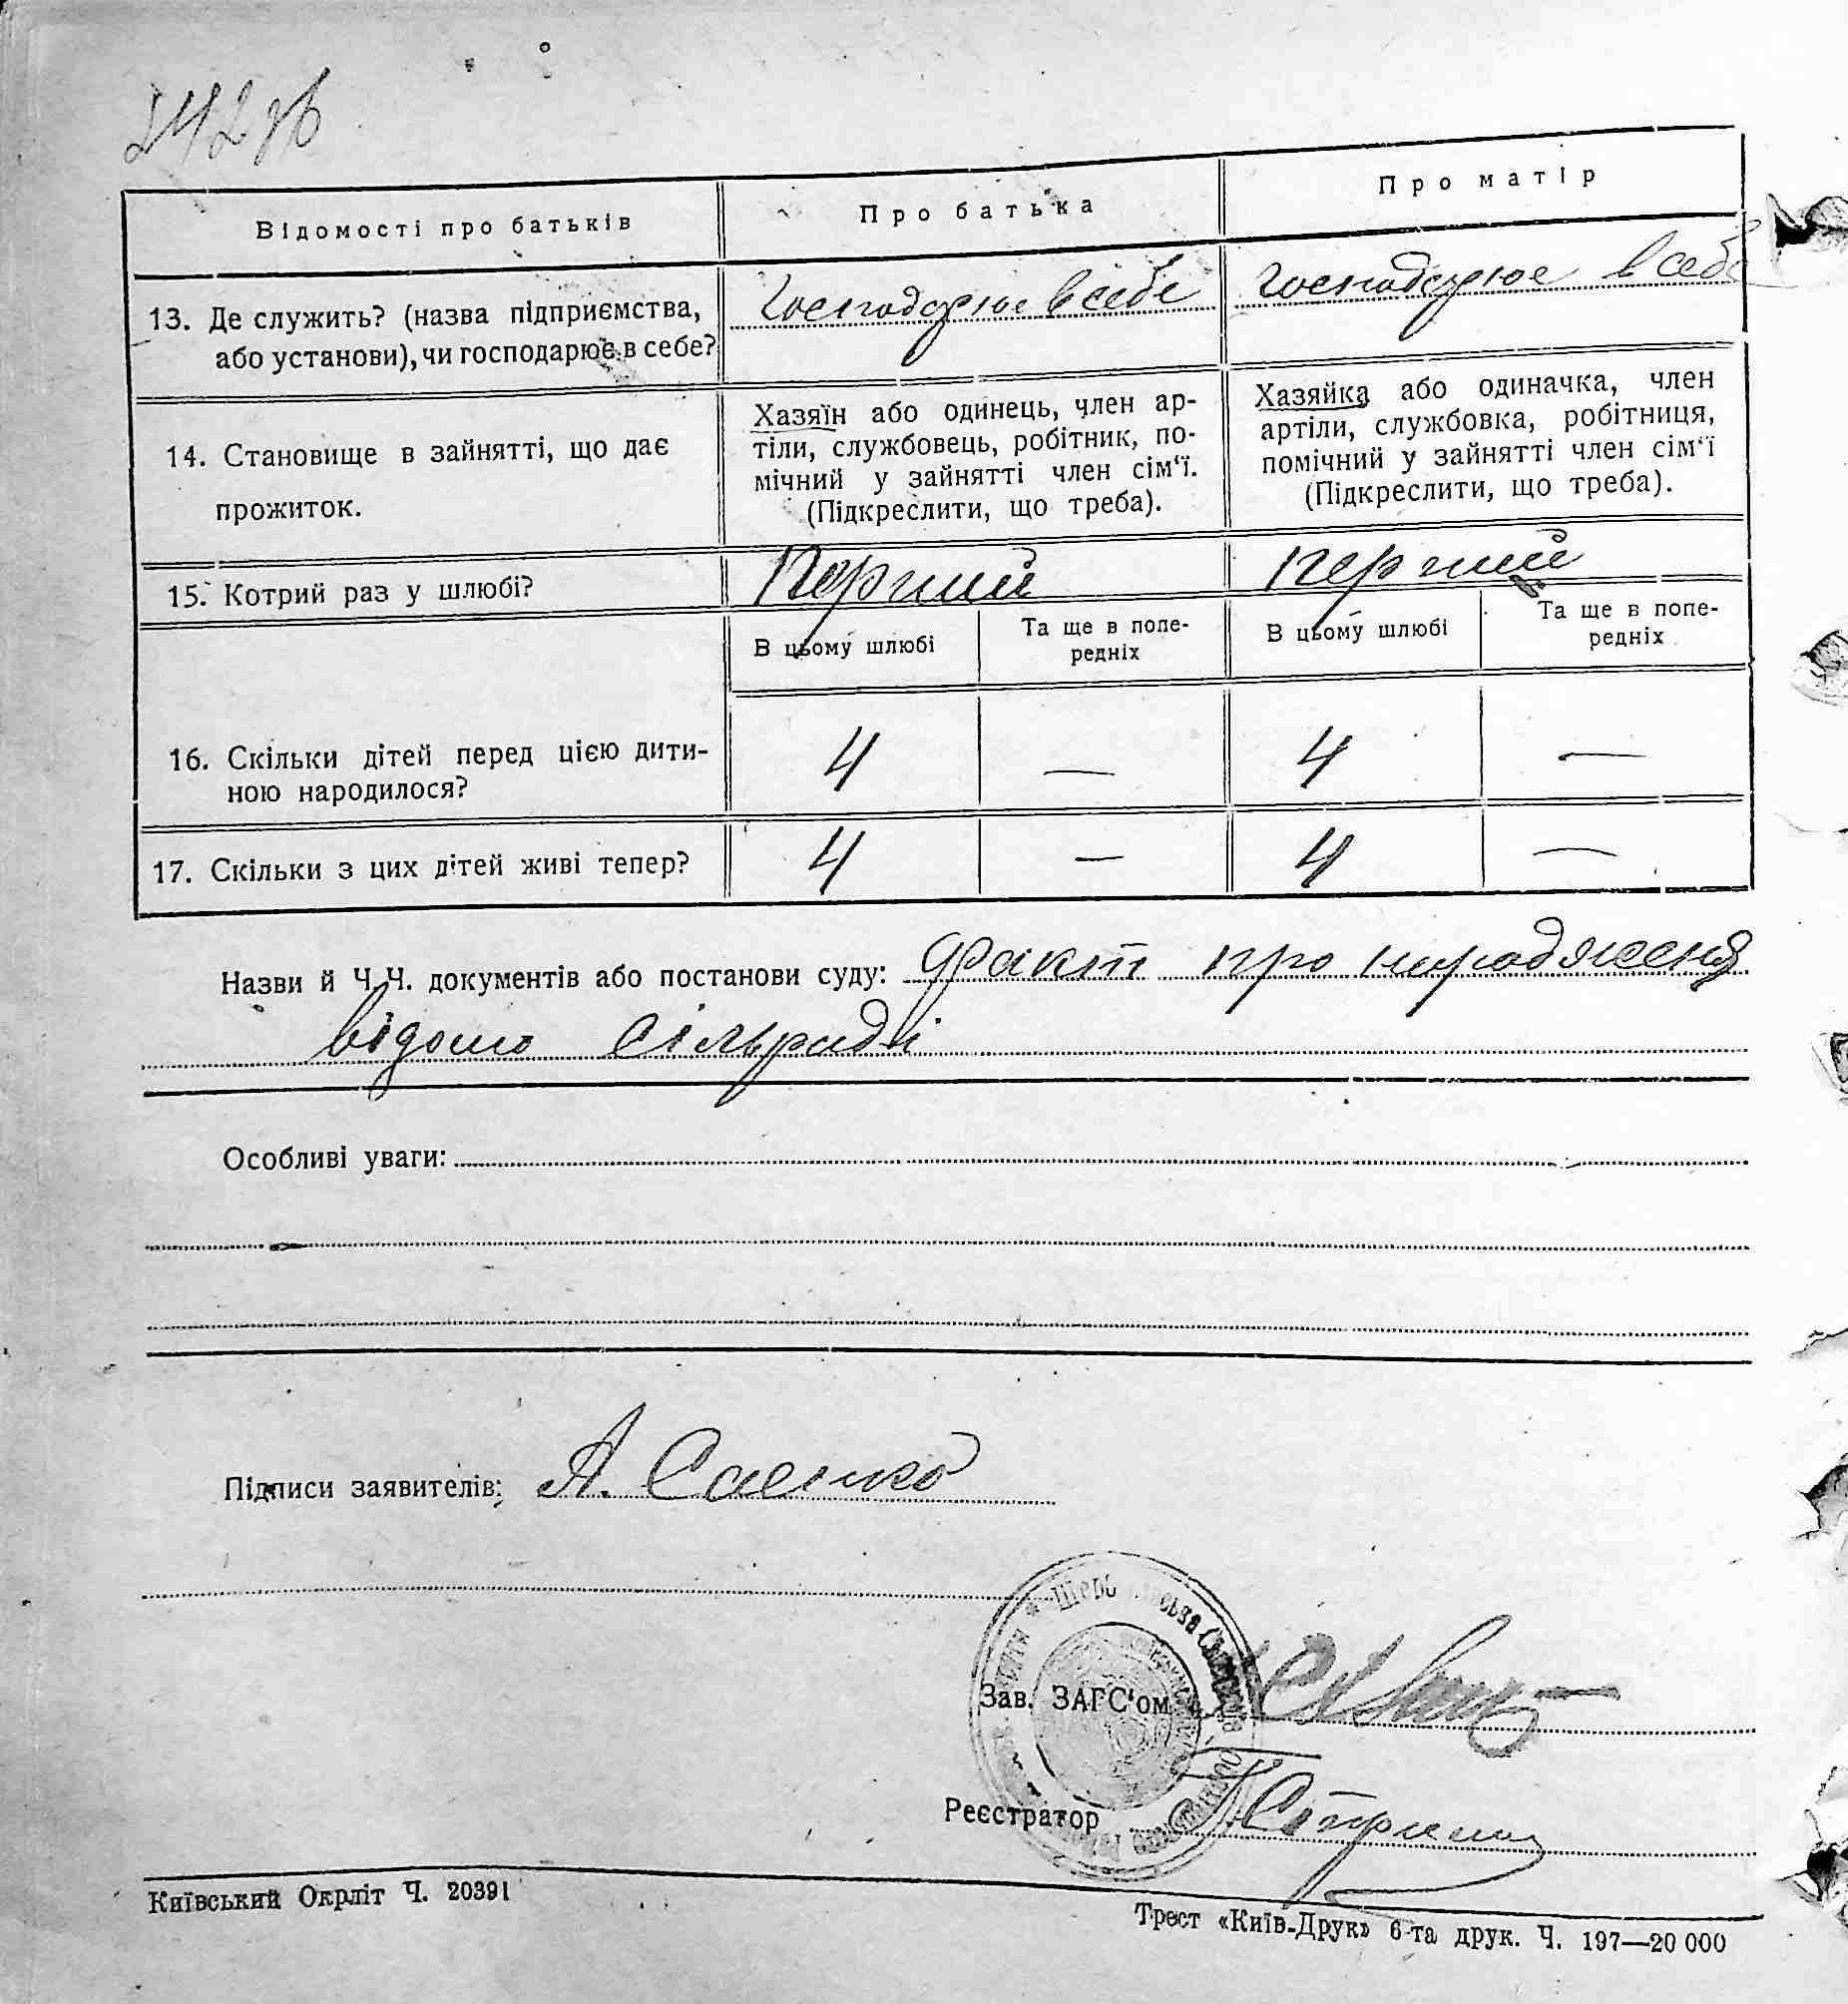 242зв
Відомості про батьків
Про батька
Про матір
13. Де служить? (назва підприємства,
або установи), чи господарює в себе?
Господарює в себе
Господарює в себе
14. Становище в зайнятті, що дає
прожиток.
Хазяїн або одинець, член ар-
тіли, службовець, робітник, по-
мічний у зайнятті член сім‘ї.
(Підкреслити, що треба).
Хазяйка або одиначка, член
артіли, службовка, робітниця,
помічний у зайнятті член сім‘ї
(Підкреслити, що треба).
15. Котрий раз у шлюбі?
Перший
перший
В цьому шлюбі
Та ще в попе-
редніх
В цьому шлюбі
Та ще в попе-
редніх
16. Скільки дітей перед цією дити-
ною народилося?
4 — 4 —
17. Скільки з цих дітей живі тепер?
4 — 4 —
Назви й Ч.Ч. документів або постанови суду: Факт про народження
відомо сільраді
Особливі уваги:
Підписи заявителів: А. Саенко
Зав. ЗАГС‘ом
Реєстратор
Київський Окрліт Ч. 20391
Трест «Київ-Друк» 6-та друк. Ч. 197—20 000